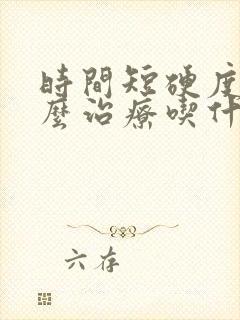 時間短硬度
麼治療喫什
六存